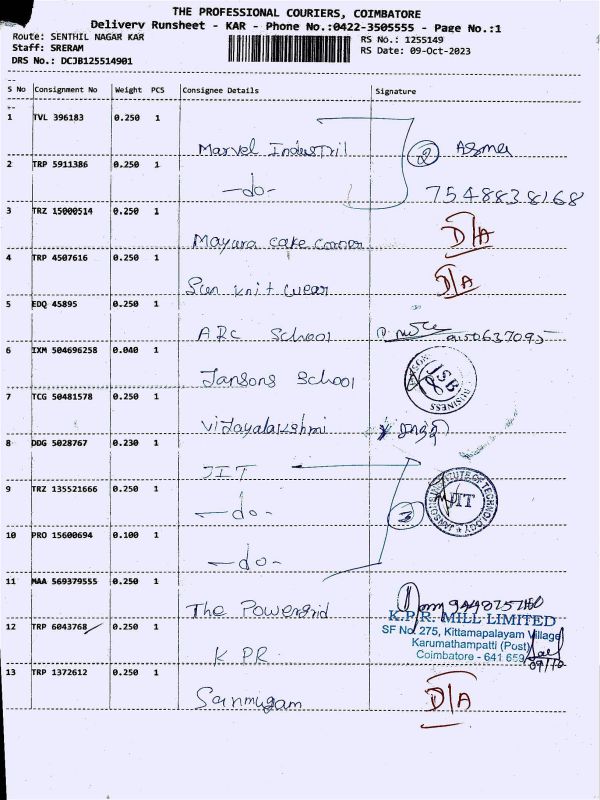 THE PROFESSIONAL COURIERS, COIMBATORE
Delivery Runsheet - KAR - Phone No.:0422-3505555 - Page No.:1
Route: SENTHIL NAGAR KAR
RS No.: 1255149
Staff: SRERAM
RS Date: 09-Oct-2023
DRS No.: DCJB125514901
S No Consignment No Weight PCS Consignee Details Signature
1 TVL 396183 0.250 1
Marvel Industril 2 Asma
2 TRP 5911386 0.250 1
-do- 7548838168
3 TRZ 15000514 0.250 1
Mayura cake corner D/A
4 TRP 4507616 0.250 1
Sun knit wear D/A
5 EDQ 45895 0.250 1
ARC School 9150637095
6 IXM 504696258 0.040 1
Jansons School JSB BUSINESS
7 TCG 50481578 0.250 1
Vijayalakshmi
8 DDG 5028767 0.230 1
JIT
9 TRZ 135521666 0.250 1
-do- 3 JANSONS INSTITUTE OF TECHNOLOGY JIT
10 PRO 15600694 0.100 1
-do-
11 MAA 569379555 0.250 1
The Powergrid
12 TRP 6043768 0.250 1
K.P.R. MILL LIMITED
SF No. 275, Kittamapalayam Village
Karumathampatti (Post)
K PR. Coimbatore - 641 659
09/10
13 TRP 1372612 0.250 1
Sanmugam D/A